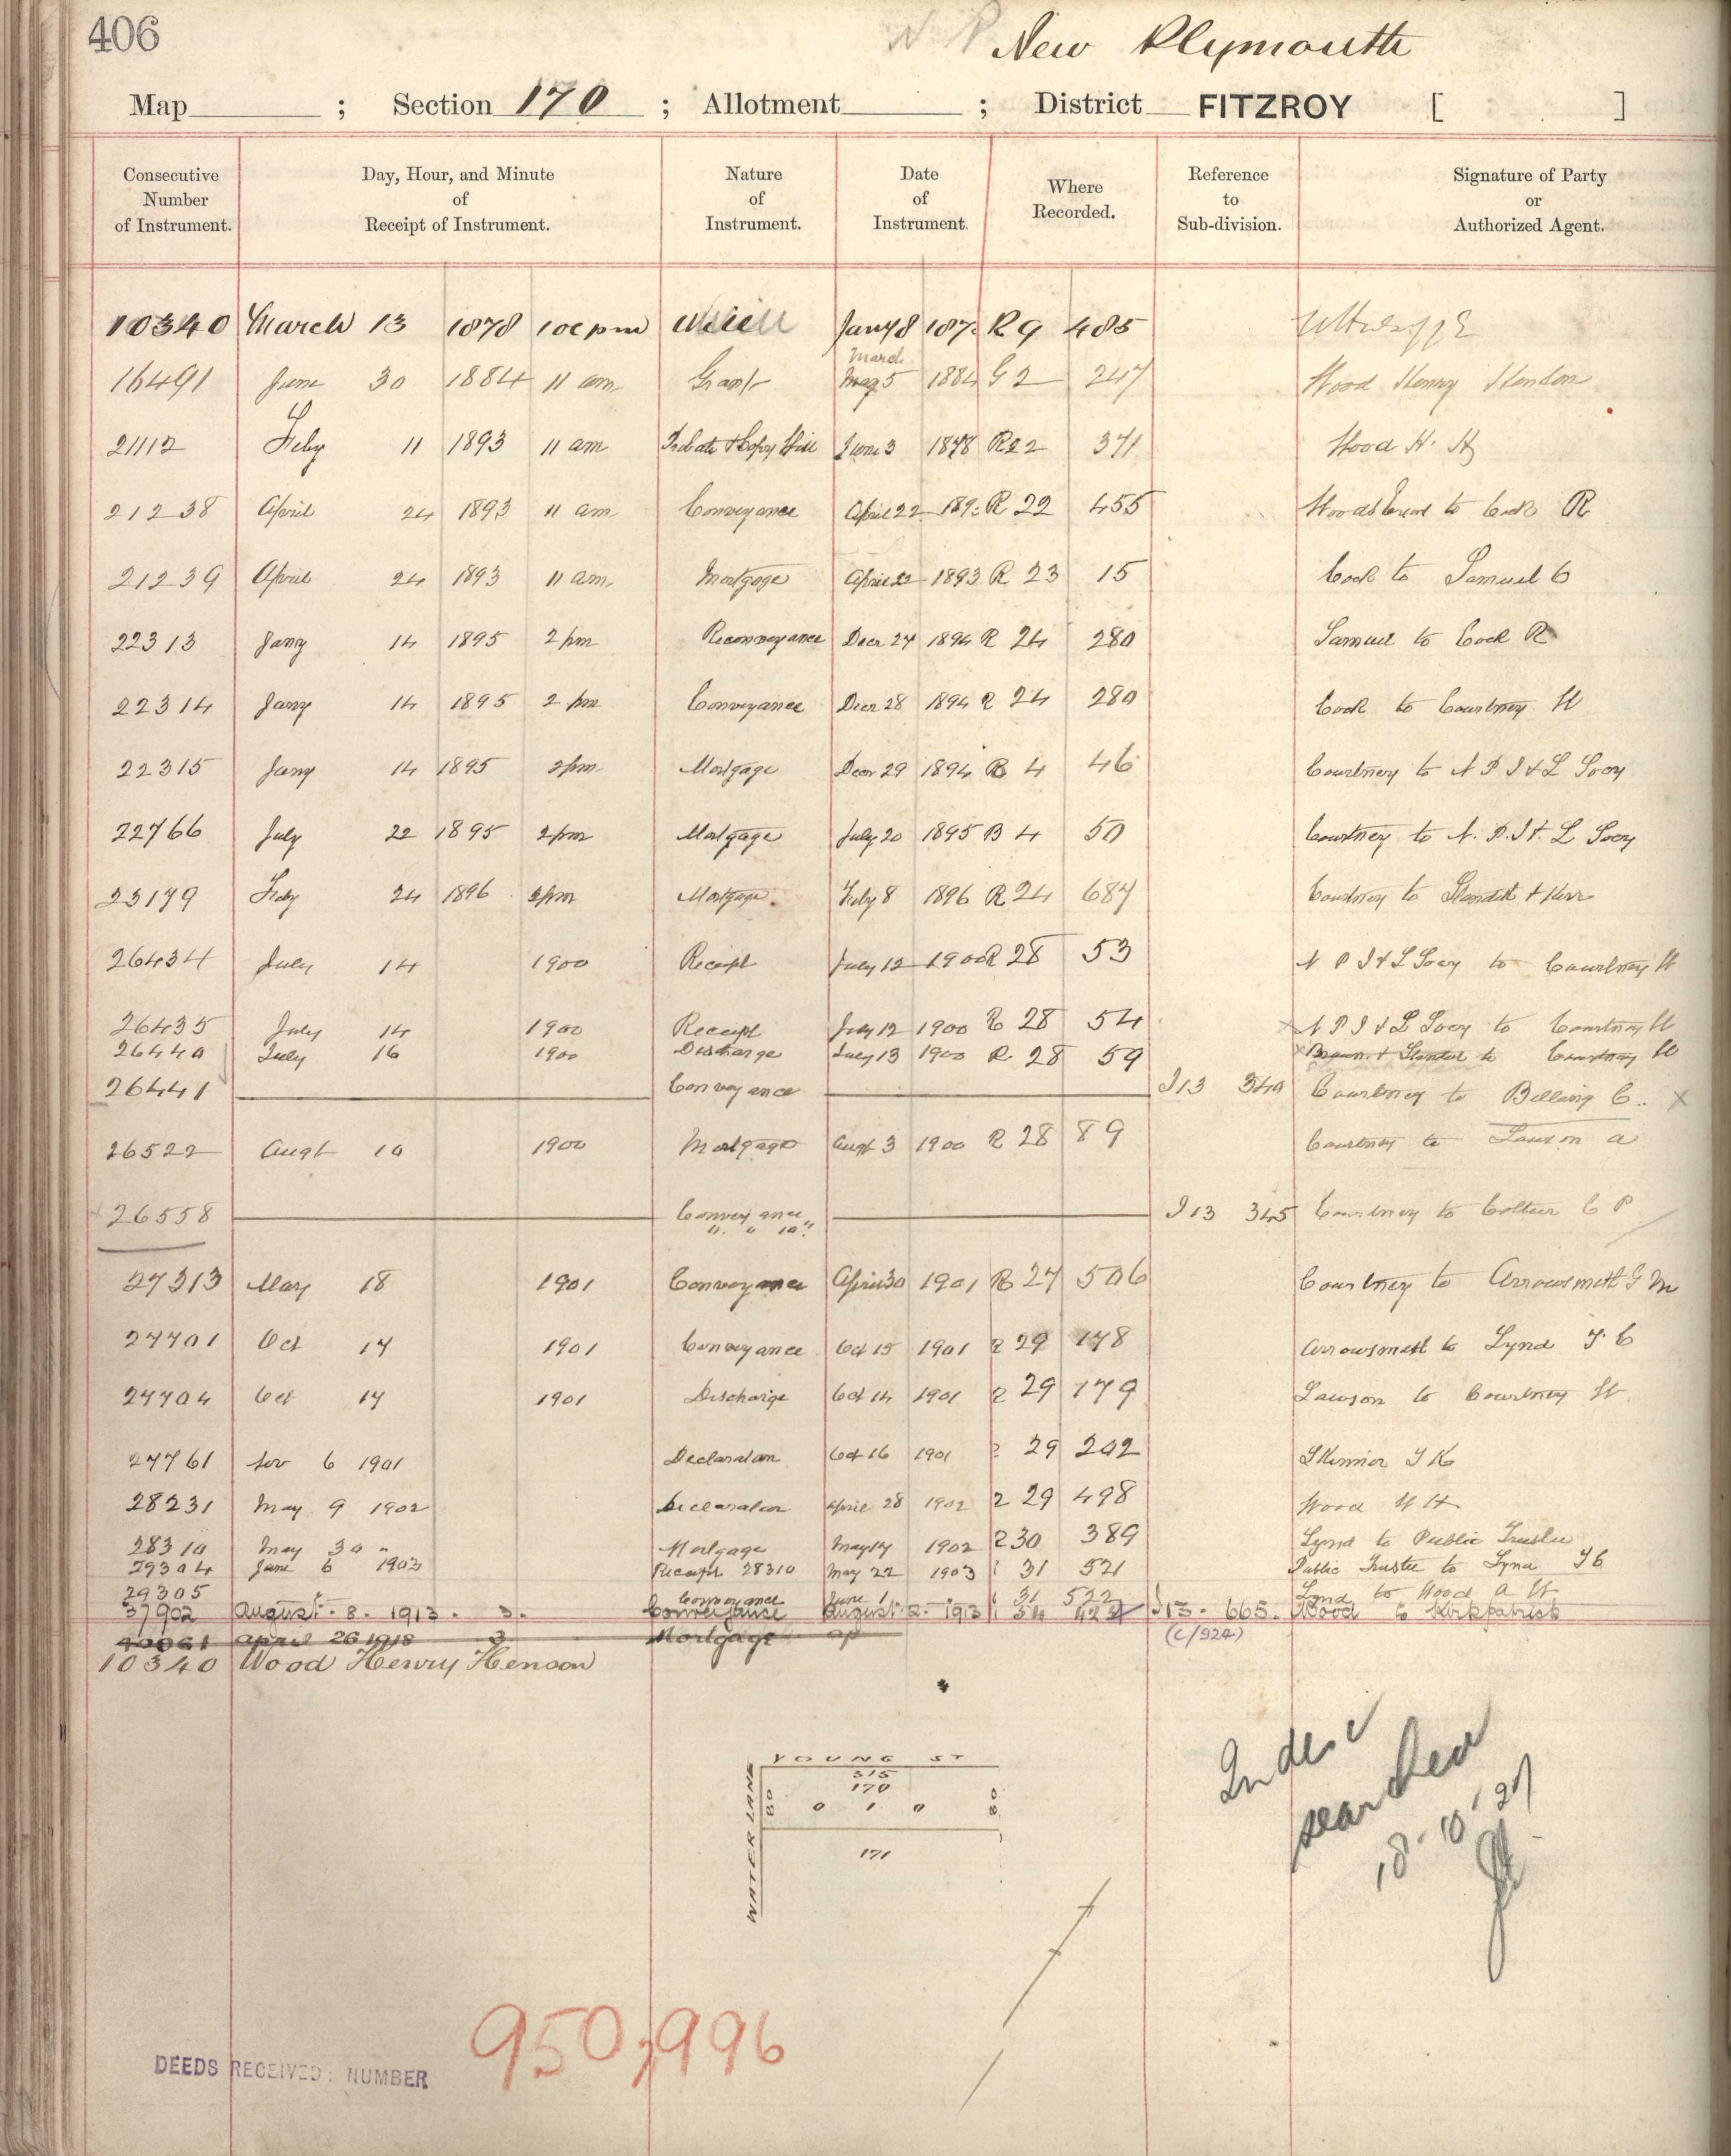 406
New Plymouth
Map ; Section 170 ; Allotment ; District FITZROY [ ]
Consecutive Number of Instrument. Day, Hour, and Minute of Receipt of Instrument. Nature of Instrument. Date of Instrument. Where Recorded. Reference to Sub-division. Signature of Party or Authorized Agent.
10340 March 13 1878 pm Jany 8 R 9 485
March
16491 June 30 1884 11 am Grant 5 1884 G 2 247 Wood Henry
21112 Feby 11 1893 11 am Probate & Copy Will June 3 1878 R 22 371 Wood H. H
21238 April 24 1893 11 am Conveyance April 22 189 R 22 455 to Cock R
21239 April 24 1893 11 am Mortgage April 22 1893 R 23 15 Cock to Samuel O
22313 Jany 14 1895 2 pm Reconveyance Decr 24 1894 R 24 280 Samuel to Cock R
22314 Jany 14 1895 2 pm Conveyance Decr 28 1894 R 24 280 Cock to Courtney H
22315 Jany 14 1895 2pm Mortgage Decr 29 1894 B 4 46 Courtney to N P I & L Socy
22766 July 22 1895 2pm Mortgage July 20 1895 B 4 50 Courtney to N. P. I & L Socy
23179 Feby 24 1896 2pm Mortgage 8 1896 R 24 687 Courtney to Standish & Kerr
26434 July 14 1900 Receipt July 12 1900 R 28 53 N P I & L Socy to Courtney H
26435 July 14 1900 Receipt July 12 1900 R 28 54 N P I & L Socy to Courtney H
26440 July 16 1900 Discharge July 13 1900 R 28 59 to Courtney H
26441 Conveyance I13 340 Courtney to Billing C. X
26522 Augt 10 1900 Mortgage Augt 3 1900 R 28 89 Courtney to Lawson A
26558 Conveyance I13 345 Courtney to C P
" " 10 "
27313 May 18 1901 Conveyance April 30 1901 R 27 506 Courtney to Arrowsmith G M
27701 Oct 17 1901 Conveyance Oct 15 1901 R 29 178 Arrowsmith to Lynd J C
27704 Oct 17 1901 Discharge Oct 14 1901 R 29 179 Lawson to Courtney H
27761 Nov 6 1901 Declaration Oct 16 1901 R 29 202 Skinner T K
28231 May 9 1902 Declaration April 28 1902 R 29 498 Wood H H
28310 May 30 " Mortgage May 14 1902 R 30 389 Lynd to Public Trustee
29304 June 6 1903 Receipt 28310 May 22 1903 R 31 521 Public Trustee to Lynd J C
29305 Conveyance June 1 31 522 Lynd to Wood A H
37902 August. 8. 1913. 3. Conveyance August 2. 1913 I13. 665. Wood to Kirkpatrick
40061 April 26 1918 3 Mortgage ap (C/924)
10340 Wood Henry Henson
YOUNG ST
315
170
80 0 1 0 80
WATER LANE
171
Index
searched
18.10.'27
950,996
DEEDS RECEIVED: NUMBER